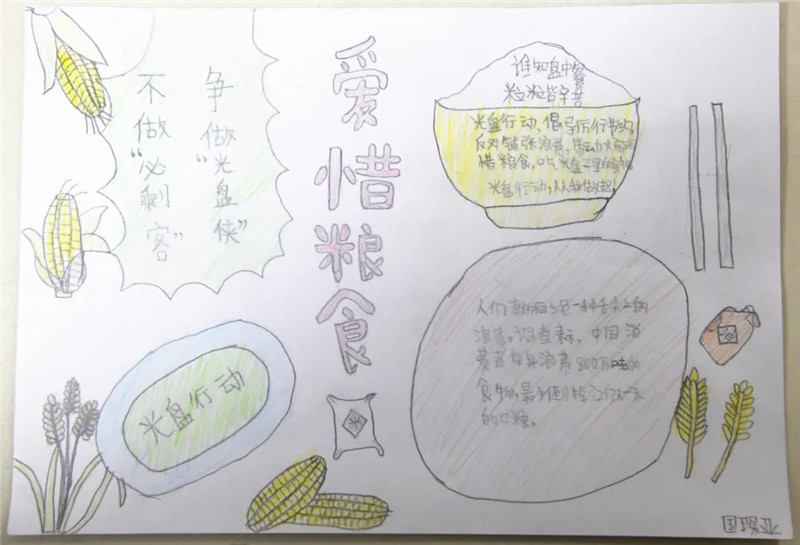 争做“光盘侠”
不做“必剩客”
爱惜粮食
谁知盘中餐
粒粒皆辛苦
光盘行动、倡导厉行节约,
反对铺张浪费、带动大家
惜粮食,吃光盘子里的食物
光盘行动,从我做起!
人们 是一种舌尖上的
浪费。调查 中国消
费者 浪费800万吨
食物,最 倒掉2亿人一
的口粮。
光盘行动
米